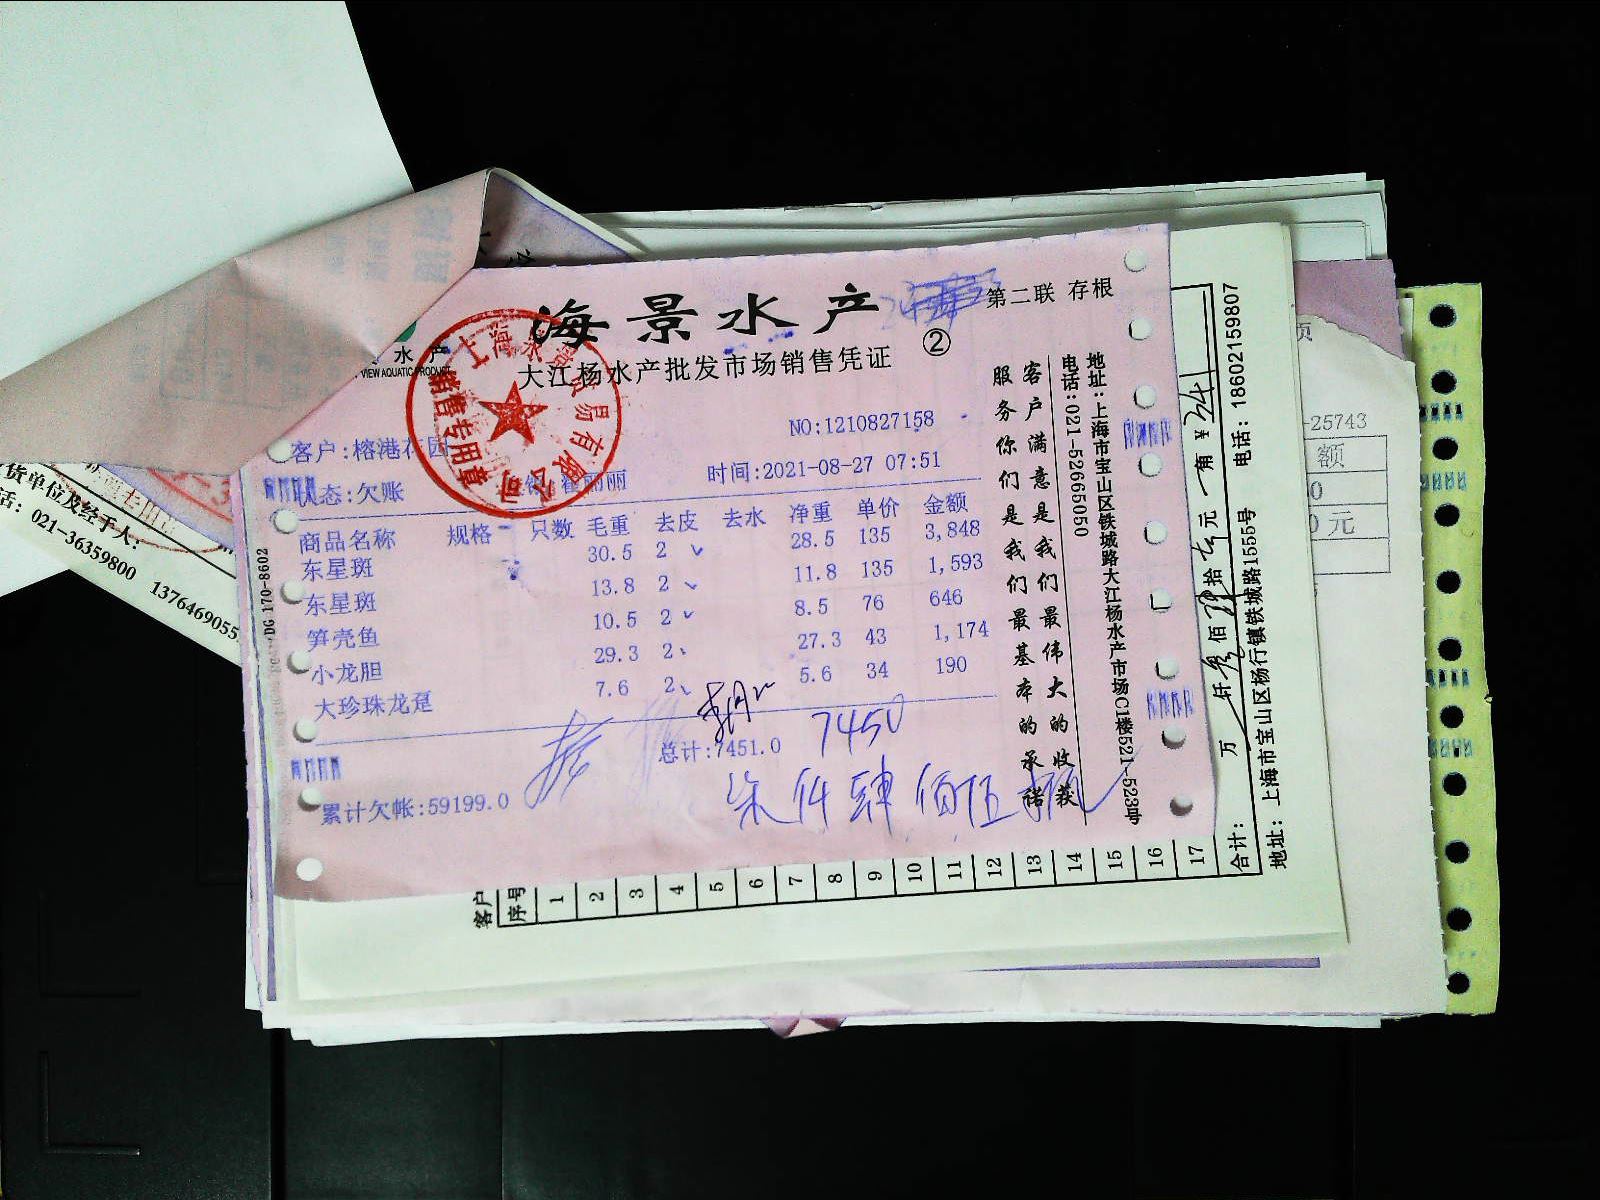 海景水产
第二联 存根
大江杨水产批发市场销售凭证
②
水产
VIEW AQUATIC PRODUCT
销售专用章
NO:1210827158
客户:榕港花园
时间:2021-08-27 07:51
状态:欠账
翟丽丽
商品名称 规格 只数 毛重 去皮 去水 净重 单价 金额
东星斑 30.5 2 28.5 135 3,848
东星斑 13.8 2 11.8 135 1,593
笋壳鱼 10.5 2 8.5 76 646
小龙胆 29.3 2 27.3 43 1,174
大珍珠龙趸 7.6 2 5.6 34 190
总计:7451.0
7450
累计欠帐:59199.0
柒仟肆佰伍拾
客户满意是我们最伟大的收获
服务你们是我们最基本的承诺
地址:上海市宝山区铁城路大江杨水产市场C1楼521-523号
电话:021-52665050
DG 170-8602
货单位及经手人:
话: 021-36359800 1376469055
客户
序号 1 2 3 4 5 6 7 8 9 10 11 12 13 14 15 16 17
合计: 万 仟 佰 拾 元 角 ¥341
地址: 上海市宝山区杨行镇铁城路1555号 电话: 18602159807
-25743
额
0
0 元